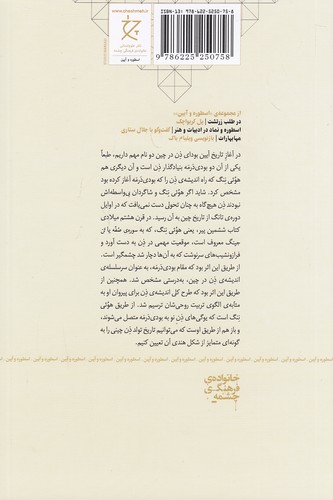 www.cheshmeh.ir
ISBN-13: 978-622-5250-75-8
9786225250758
اسطوره و آیین
از مجموعه‌ی «اسطوره و آیین»:
در طلب زرتشت | پل کریواچک
اسطوره و نماد در ادبیات و هنر | گفت‌وگو با جلال ستاری
مهابارات | بازنویسی ویلیام باک
در آغاز تاریخ آیین بودای ذِن در چین دو نام مهم داریم، طبعاً
یکی از آن دو بودی‌دَرمَه بنیادگذار ذِن است و آن دیگری هم
هوُئی نِنگ که راه اندیشه‌ی ذِن را که بودی‌دَرمَه آغاز کرده بود
مشخص کرد. شاید اگر هوُئی نِنگ و شاگردان بی‌واسطه‌اش
نبودند ذِن هیچ‌گاه به چنان تحولی دست نمی‌یافت که در اوایل
دوره‌ی تانگ از تاریخ چین به آن رسید. در قرن هشتم میلادی
کتاب ششمین پیر، یعنی هوُئی نِنگ، که به سوره‌ی سَکّو یا تَن
جینگ معروف است، موقعیت مهمی در ذِن به دست آورد و
فرازونشیب‌های سرنوشت که به آن‌ها دچار شد چشمگیر است.
از طریق این اثر بود که مقام بودی‌دَرمَه، به عنوان سرسلسله‌ی
اندیشه‌ی ذِن در چین، به‌درستی مشخص شد. همچنین از
طریق این اثر بود که طرح کلی اندیشه‌ی ذِن برای پیروان او به
مثابه‌ی الگوی تربیت روحی‌شان ترسیم شد. از طریق هوُئی
نِنگ است که یوگی‌های ذِن نو به بودی‌دَرمَه متصل می‌شوند،
و باز هم از طریق اوست که می‌توانیم تاریخ تولد ذِن چینی را به
گونه‌ای متمایز از شکل هندی آن تعیین کنیم.
اسطوره و آیین اسطوره و آیین اسطوره و آیین اسطوره و آیین اسطوره و آیین اسطوره و آیین
خانواده‌ی
فرهنگی
چشمه